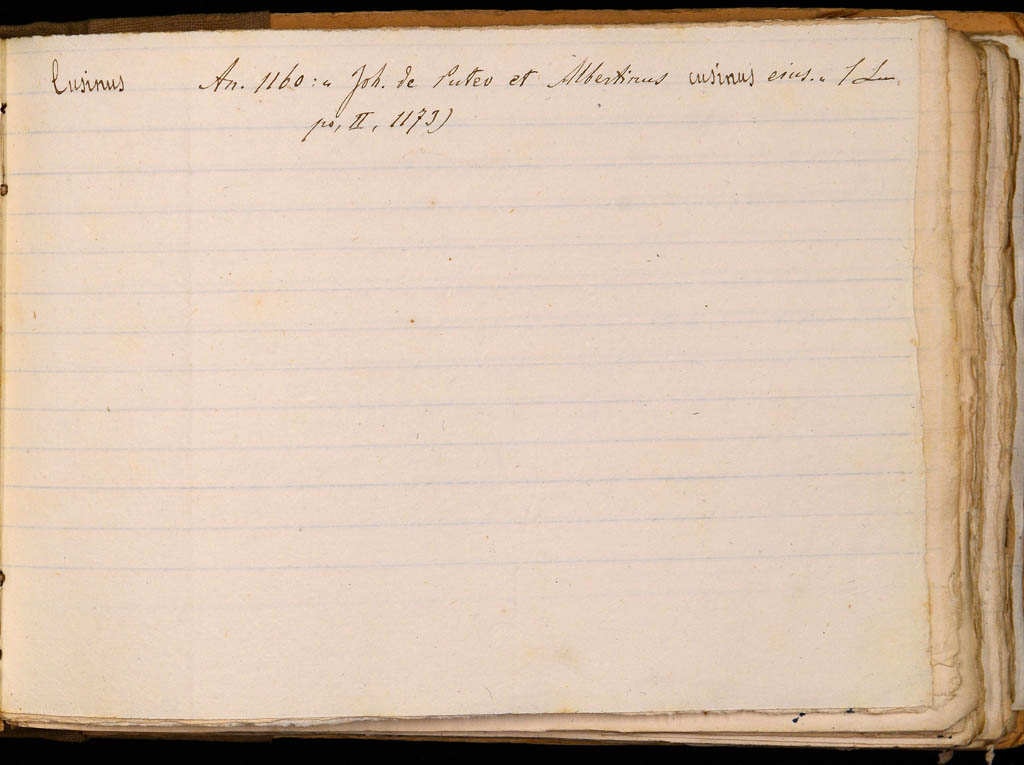 Cusinus An. 1160: „ Joh. de Puteo et Albertinus cusinus eius. „ (Lu-
po, II, 1173)